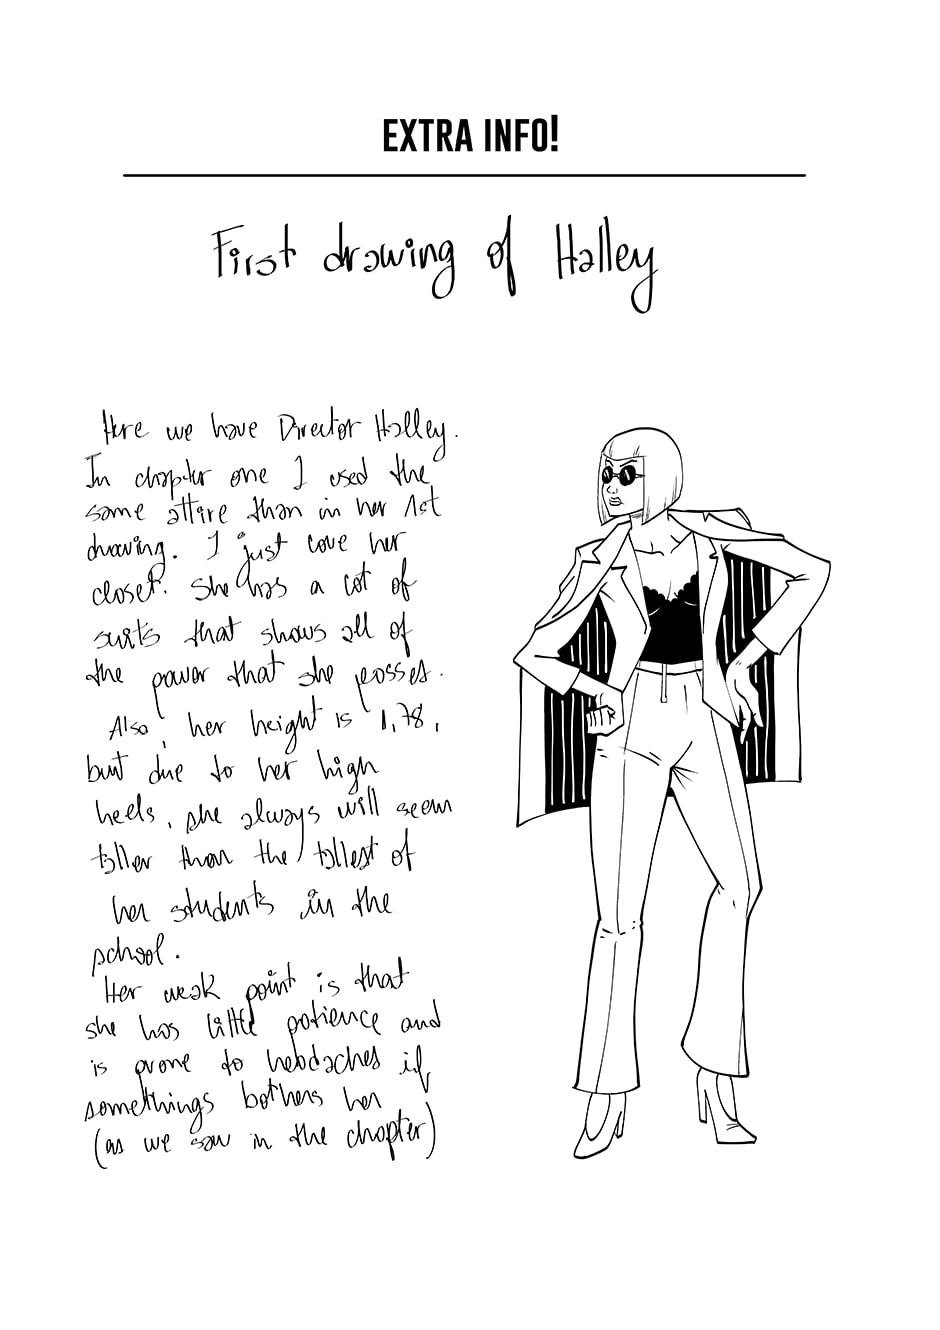 EXTRA INFO!
First drawing of Halley
Here we have Director Halley.
In chapter one I used the
same attire than in her 1st
drawing. I just love her
closet. She has a lot of
suits that shows all of
the power that she posses.
Also, her height is 1,78,
but due to her high
heels, she always will seem
taller than the tallest of
her students in the
school.
Her weak point is that
she has little patience and
is prone to headaches if
somethings bothers her
(as we saw in the chapter)